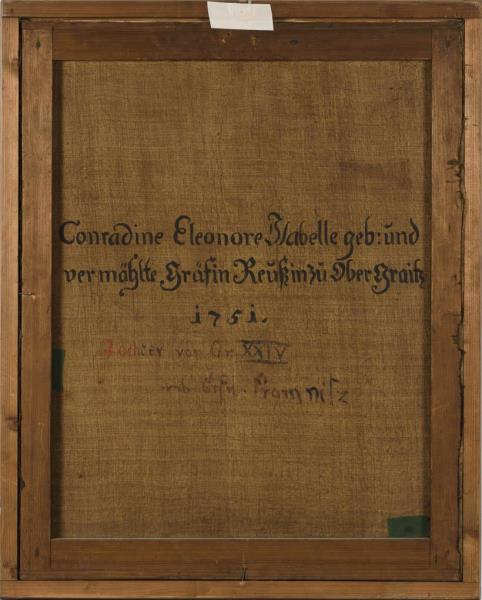 Conradine Eleonore Isabelle geb: und
vermählte Gräfin Reüßin zü Ober Graitz
1751.
Tochter von Gr. XXIV
und Gräfn. Promnitz